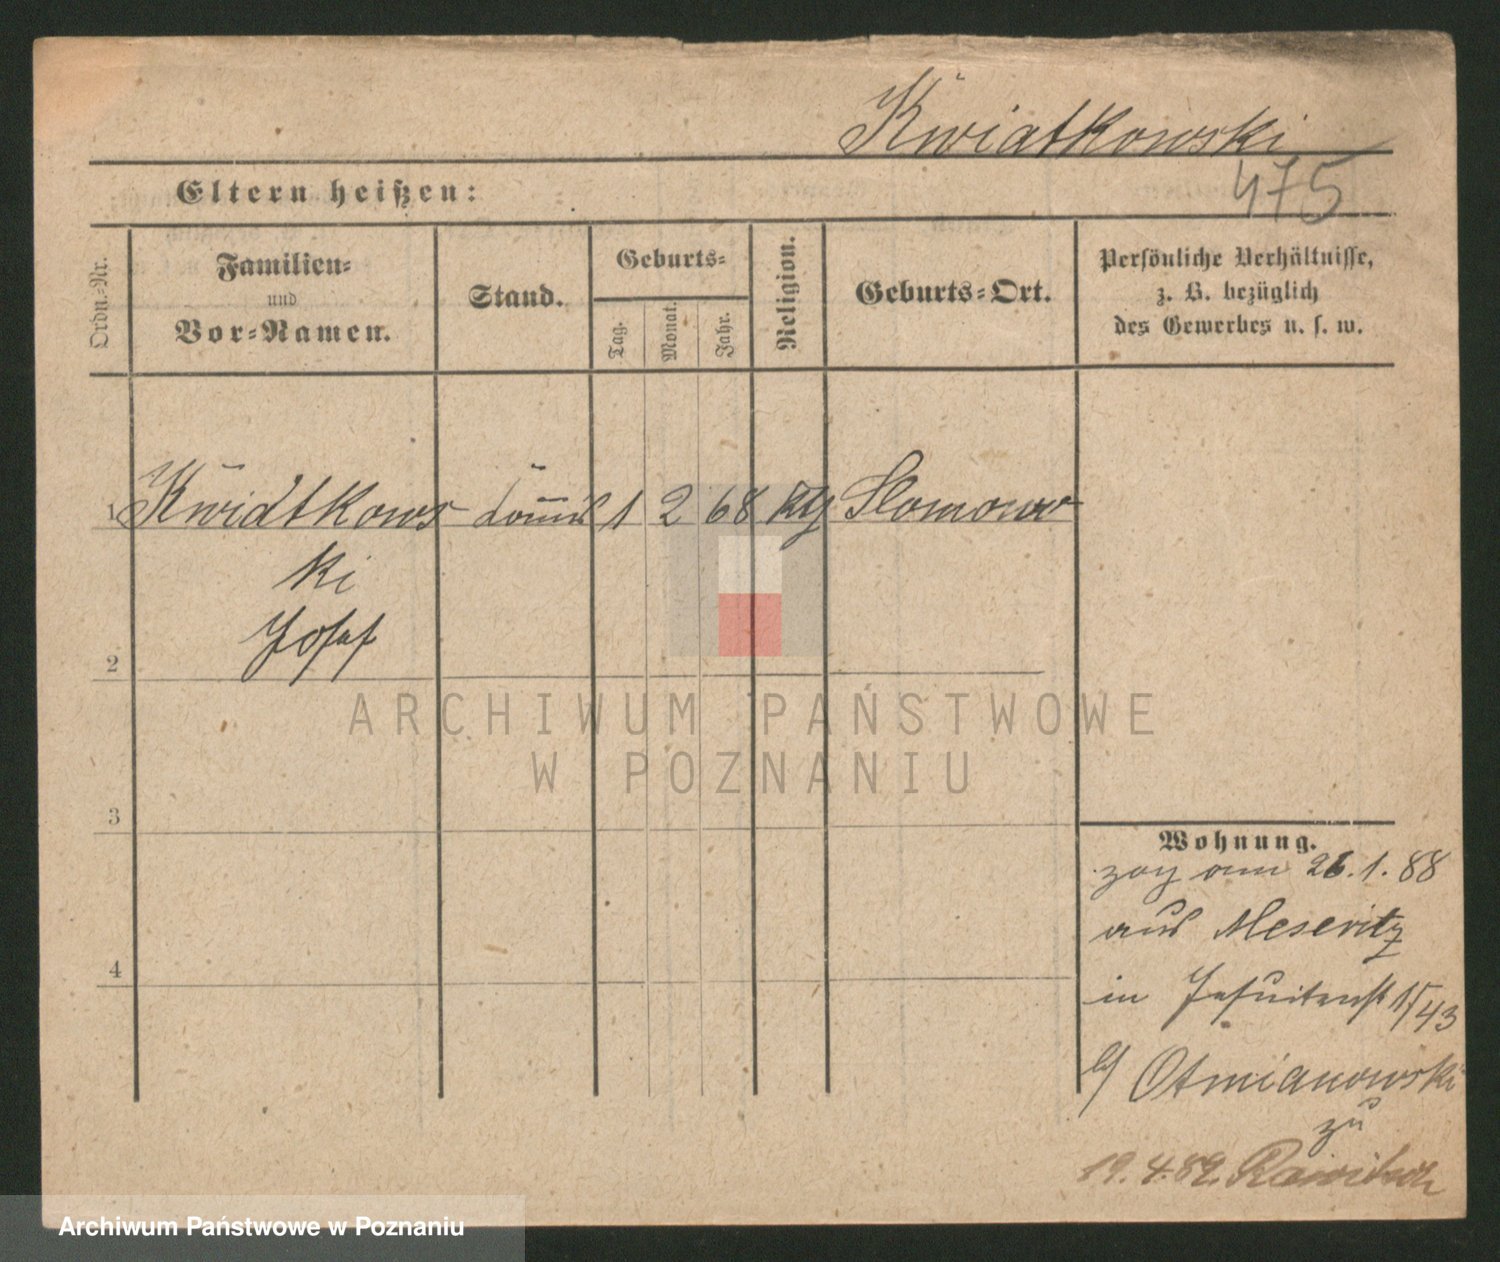 Kwiatkowski
475
Eltern heißen:
Ordn.-Nr.
Familien-
und
Vor-Namen.
Stand.
Geburts-
Tag.
Monat.
Jahr.
Religion.
Geburts-Ort.
Persönliche Verhältnisse,
z. B. bezüglich
des Gewerbes u. s. w.
1 Kwiatkows 1 2 68 Slomowo
ki
Josef
2
3
4
ARCHIWUM PAŃSTWOWE
W POZNANIU
Wohnung.
zog am 26.1.88
aus Meseritz
in Jesuitenst 15/43
b/ Otmianowski
zu
19.4.89. Rawitsch
Archiwum Państwowe w Poznaniu